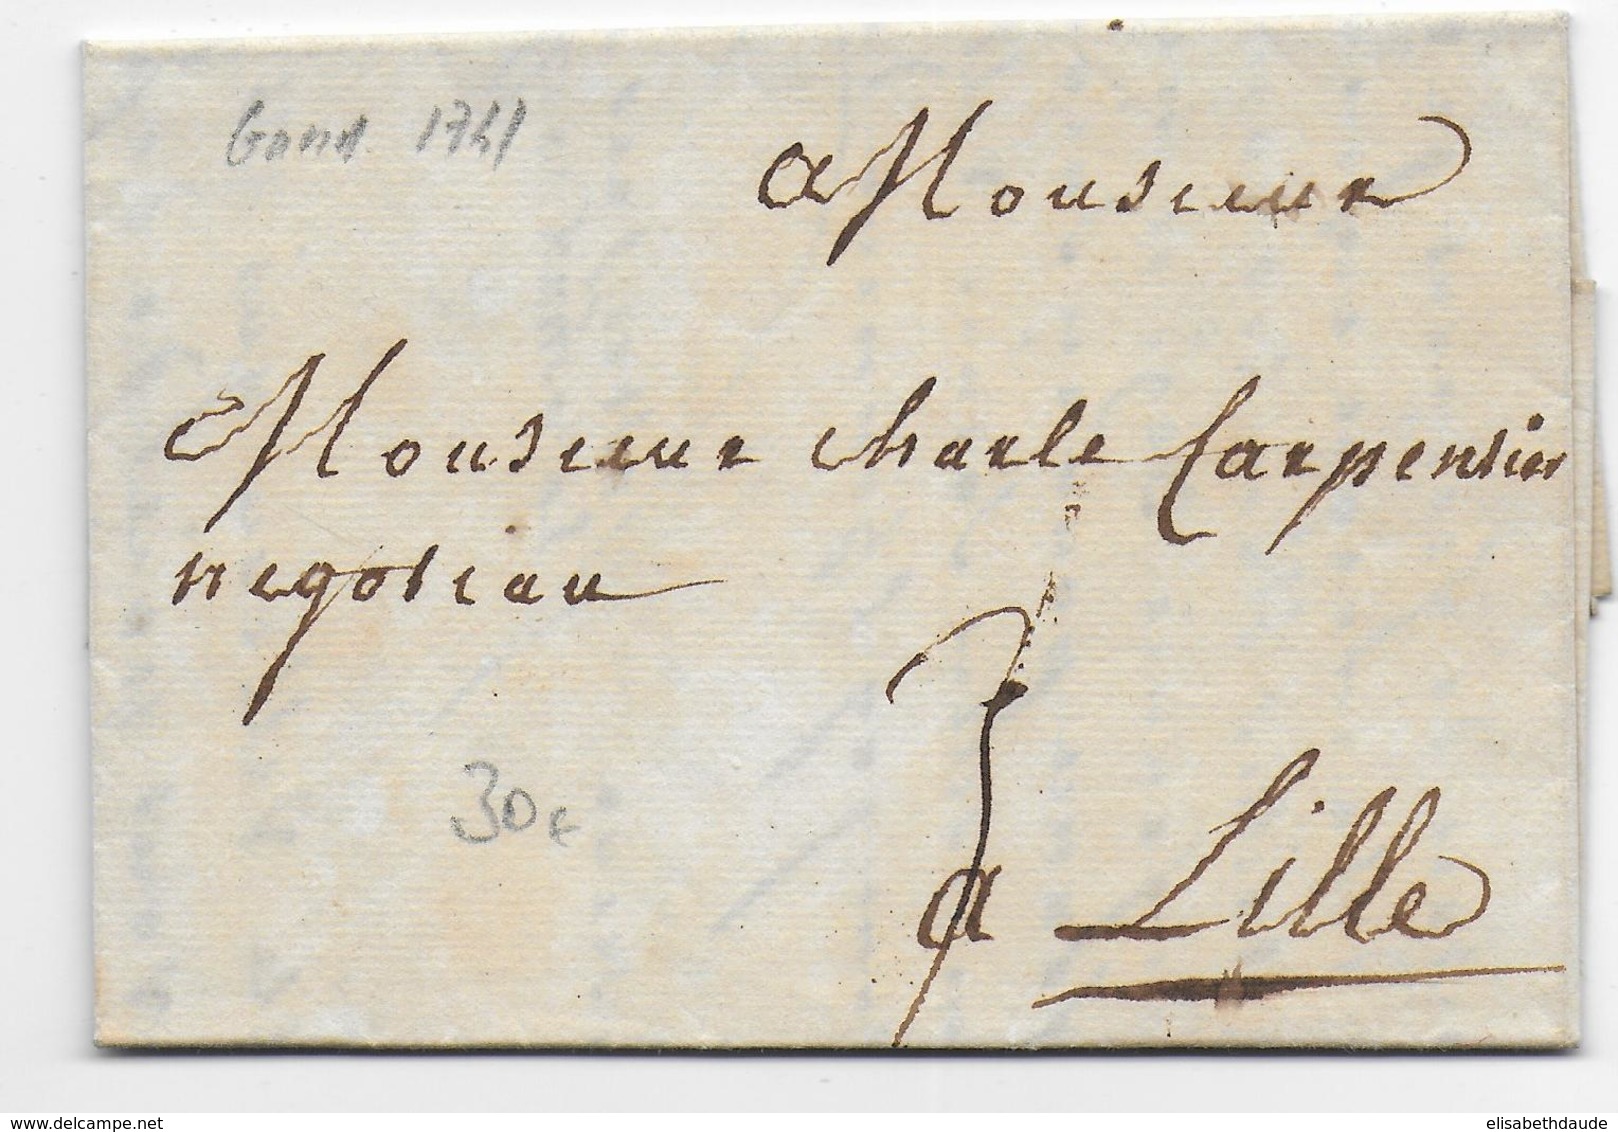 Gand 1741
a Monsieur
Monsieur charle Carpentier
negotian
30€
3
a Lille
delcampe.net
elisabethdaude